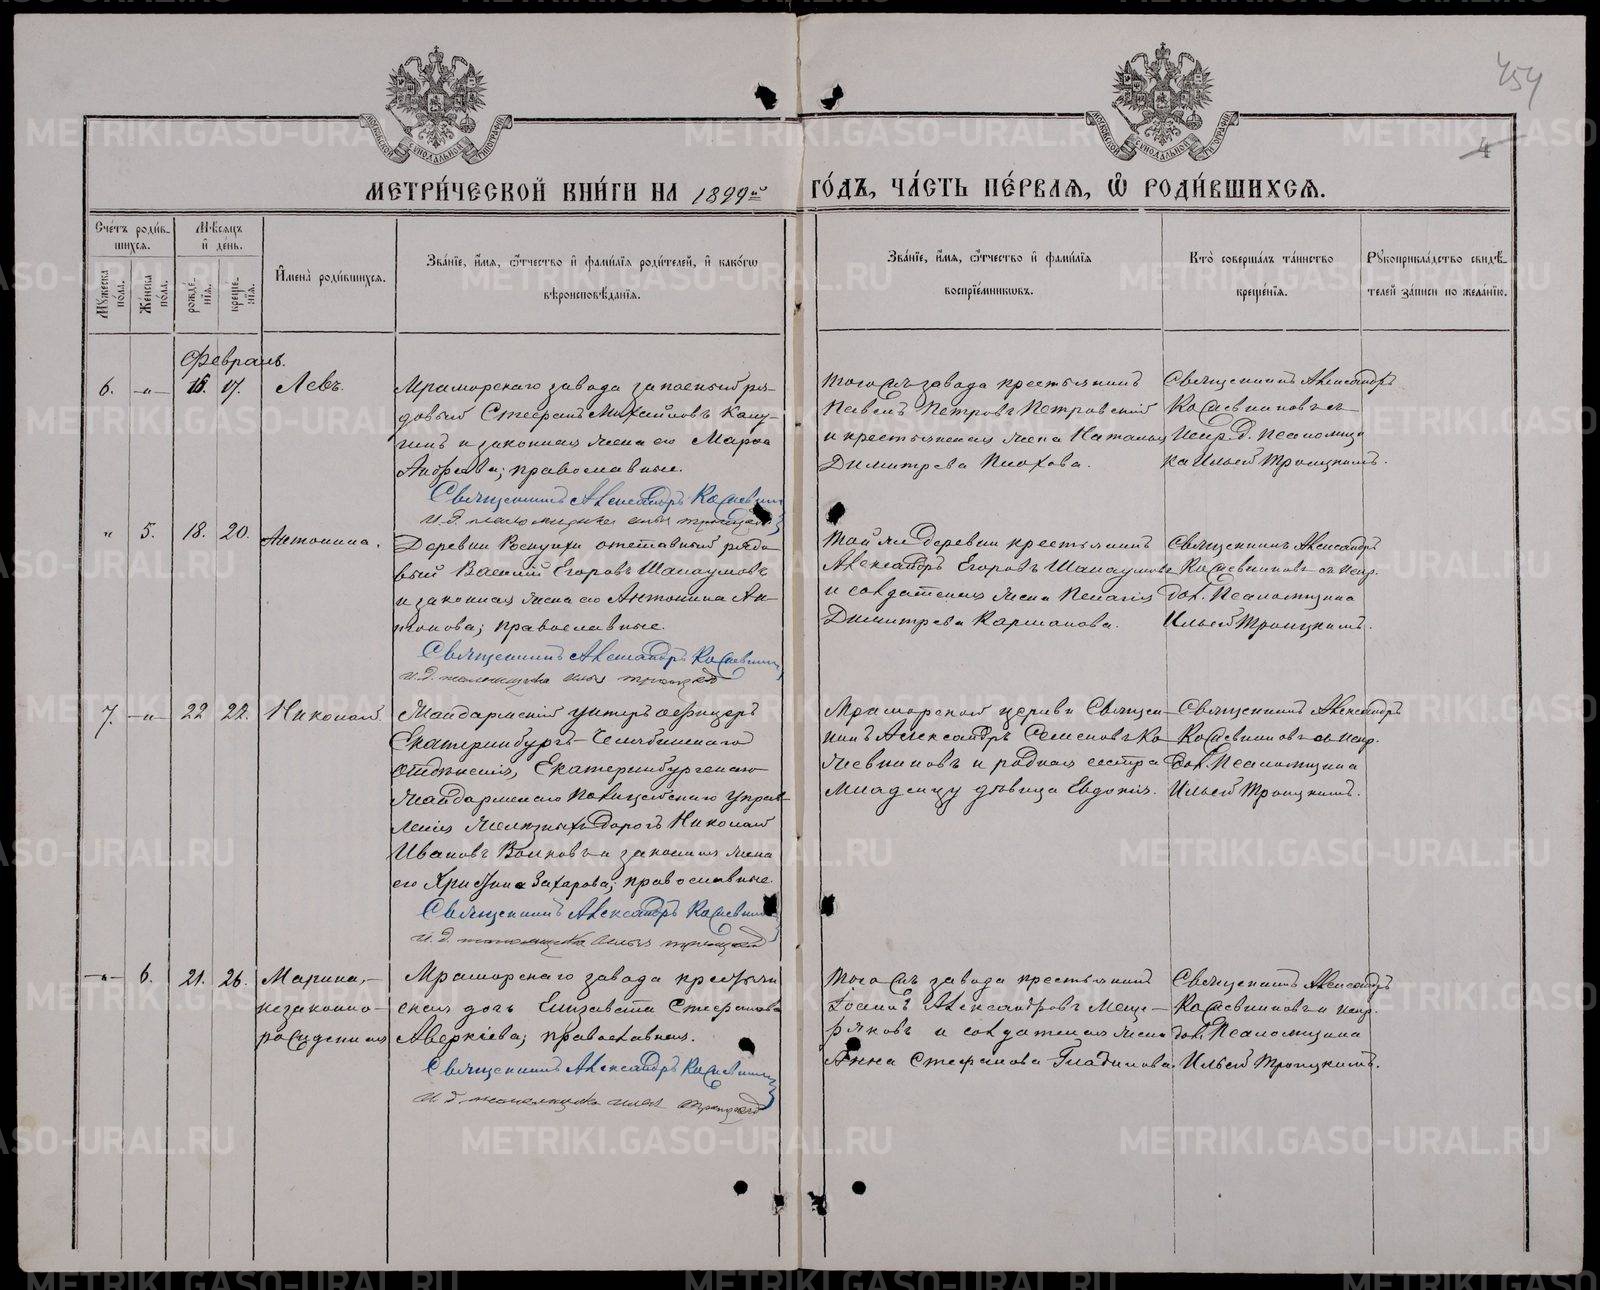 454
4
МЕТРИ́ЧЕСКОЙ КНИ́ГИ НА 1899й ГО́ДЪ, ЧА́СТЬ ПЕ́РВАЯ, Ѡ РОДИ́ВШИХСЯ.
Сче́тъ роди́вшихся.
Мꙋ́жеска по́ла.
Же́нска по́ла.
Мѣ́сяцъ и҆ де́нь.
рожде́нїя.
креще́нїя.
И҆мена̀ роди́вшихся.
Зва́нїе, и҆́мя, ѻ҆́тчество и҆ фами́лїя роди́телей, и҆ како́гѡ
вѣроисповѣ́данїя.
Зва́нїе, и҆́мя, ѻ҆́тчество и҆ фами́лїя
воспрїе́мниковъ.
Кто̀ соверша́лъ та́инство
креще́нїя.
Рꙋкоприкла́дство свидѣ́-
телей за́писи по жела́нїю.
Февраль.
6. -"- 15. 17. Левъ.
Мраморскаго завода запасный ря-
довый Стефанъ Михайловъ
и законная жена его Марѳа
Андреева; православные.
Священникъ Александръ Кожевник
И. д. псаломщика Илья Троицкій
Того жъ завода крестьянинъ
Павелъ Петровъ Петровскій
и крестьянская жена Наталья
Димитрева Плохова.
Священникъ Александръ
Кожевниковъ съ
Испр. д. псаломщи
ка Ильей Троицкимъ.
" 5. 18. 20. Антонина.
Деревни отставный рядо-
вый Василій Егоровъ Шалаумовъ
и законная жена его Антонина Ан-
тонова; православные.
Священникъ Александръ Кожевник
И. д. псаломщика Илья Троицкій
Той же деревни крестьянинъ
Александръ Егоровъ Шалаумовъ
и солдатская жена Пелагія
Димитрева Карманова.
Священникъ Александръ
Кожевниковъ съ испр.
дол. Псаломщика
Ильей Троицкимъ.
7. -"- 22 22. Николай.
Жандармскій унтеръ офицеръ
Екатеринбургъ-Челябинскаго
отдѣленія, Екатеринбургскаго
Жандармскаго Полицейскаго Управ-
ленія Желѣзныхъ Дорогъ Николай
Ивановъ Волковъ и законная жена
его Христина Захарова; православные.
Священникъ Александръ Кожевник
И. д. псаломщика Илья Троицкій
Мраморской церкви Священ-
никъ Александръ Семеновъ Ко-
жевниковъ и родная сестра
младенцу дѣвица Евдокія.
Священникъ Александръ
Кожевниковъ съ Испр.
Дол. Псаломщика
Ильей Троицкимъ.
-"- 6. 21. 26. Марина,-
незаконно-
рожденная
Мраморскаго завода крестьян
ская дочь Елизавета Стефанова
Аверкіева; православная.
Священникъ Александръ Кожевник
И. д. псаломщика Илья Троицкій
Того жъ завода крестьянинъ
Іоаннъ Александровъ Меще-
ряковъ и солдатская жена
Анна Стефанова Гладилова.
Священникъ Александръ
Кожевниковъ и испр.
дол. Псаломщика
Ильей Троицкимъ.
METRIKI.GASO-URAL.RU